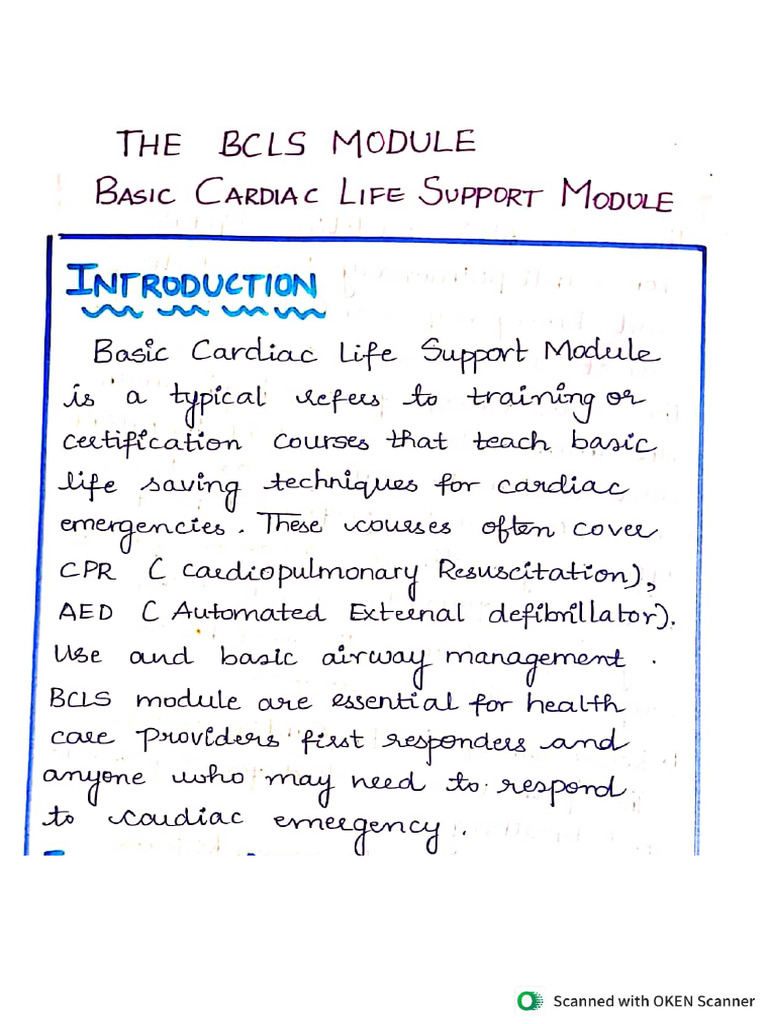 THE BCLS MODULE
BASIC CARDIAC LIFE SUPPORT MODULE
INTRODUCTION
Basic Cardiac Life Support Module
is a typical refers to training or
certification courses that teach basic
life saving techniques for cardiac
emergencies. These courses often cover
CPR ( cardiopulmonary Resuscitation),
AED ( Automated External defibrillator).
Use and basic airway management .
BCLS module are essential for health
care Providers first responders and
anyone who may need to respond
to cardiac emergency .
Scanned with OKEN Scanner